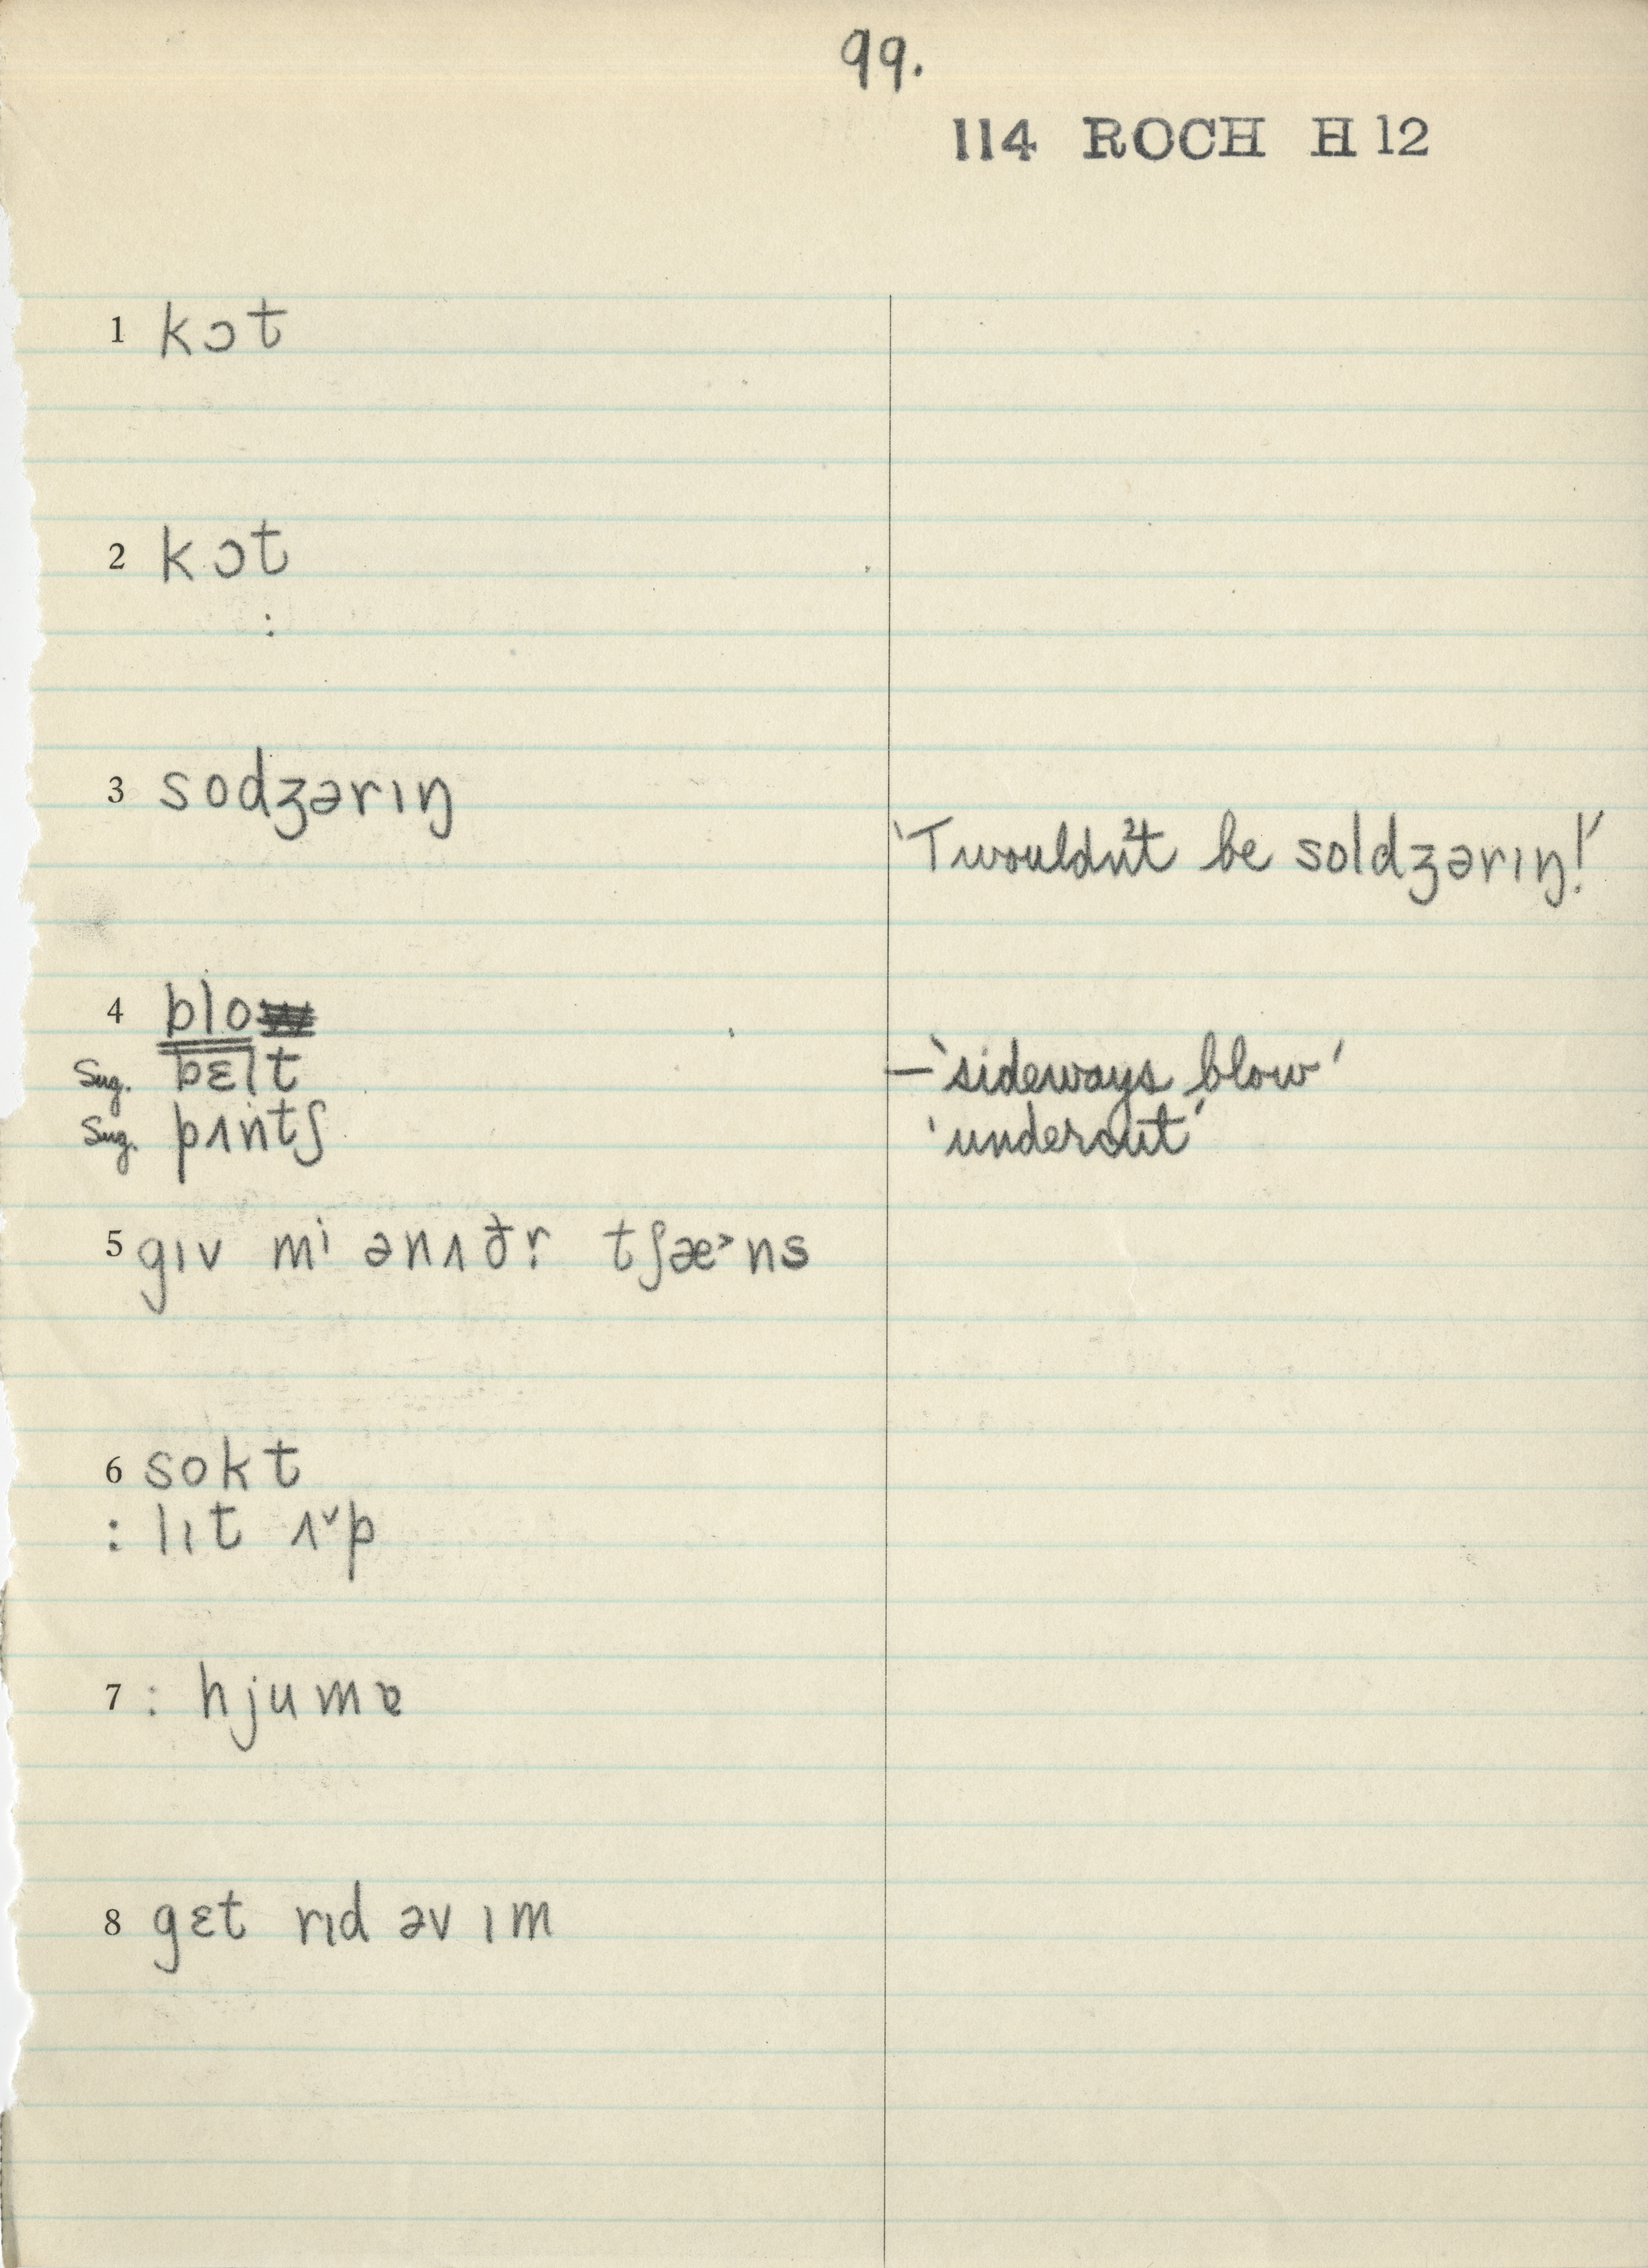 99.
114 ROCH H 12
1 kɔt
2 kɔt
:
3 sodʒərɪŋ
'Twouldn't be soldʒərɪŋ!'
4 blo
Sug. bɛlt –'sideways blow'
Sug. pʌntʃ 'undercut'
5 gɪv mⁱ ənʌðr̩ tʃæ˃ns
6 sokt
: lɪt ʌ˅p
7 : hjumɐ
8 gɛt rɪd əv ɪm